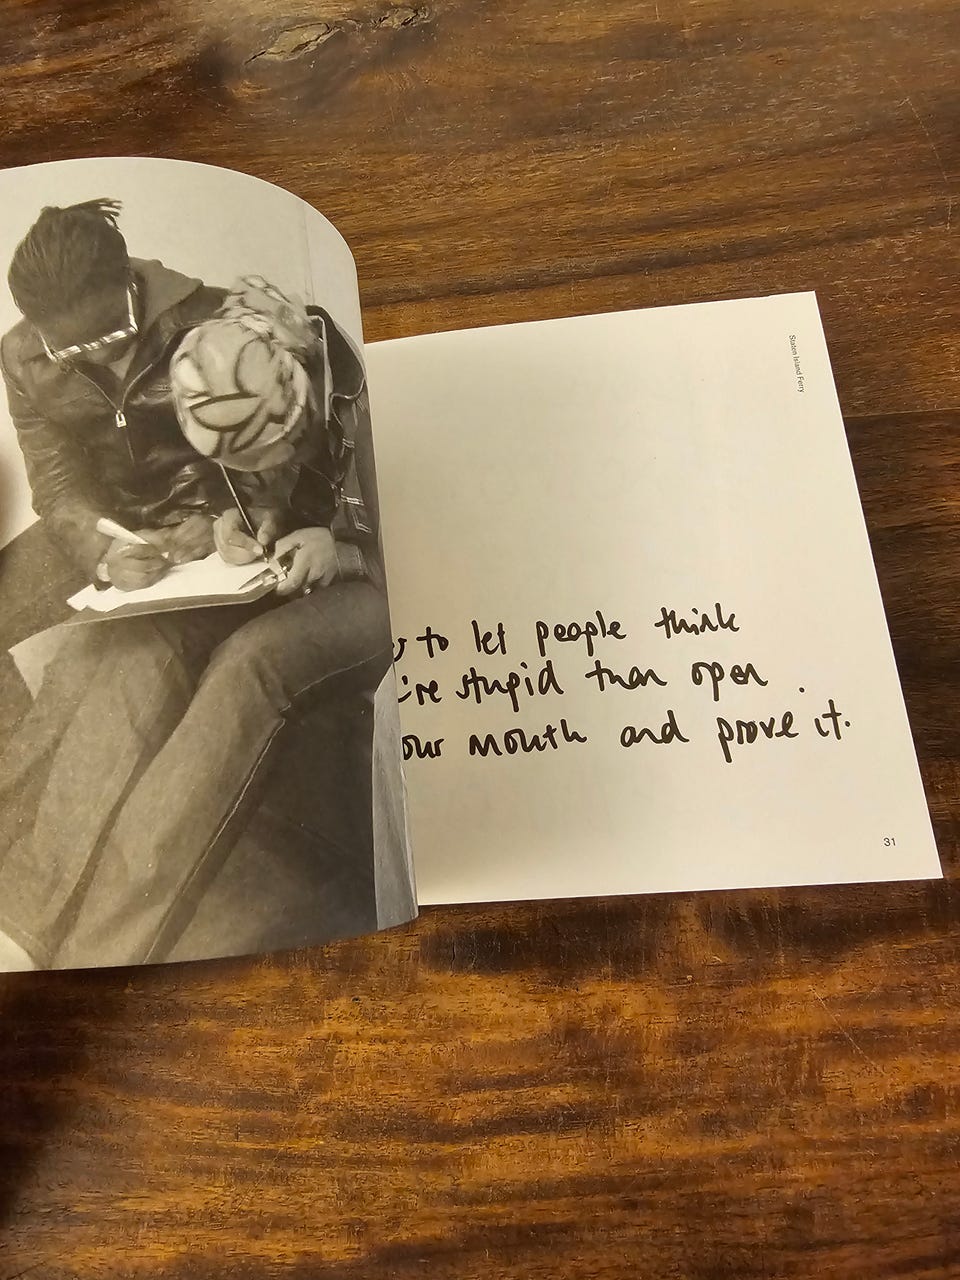 Staten Island Ferry
to let people think
stupid than open
mouth and prove it.
31